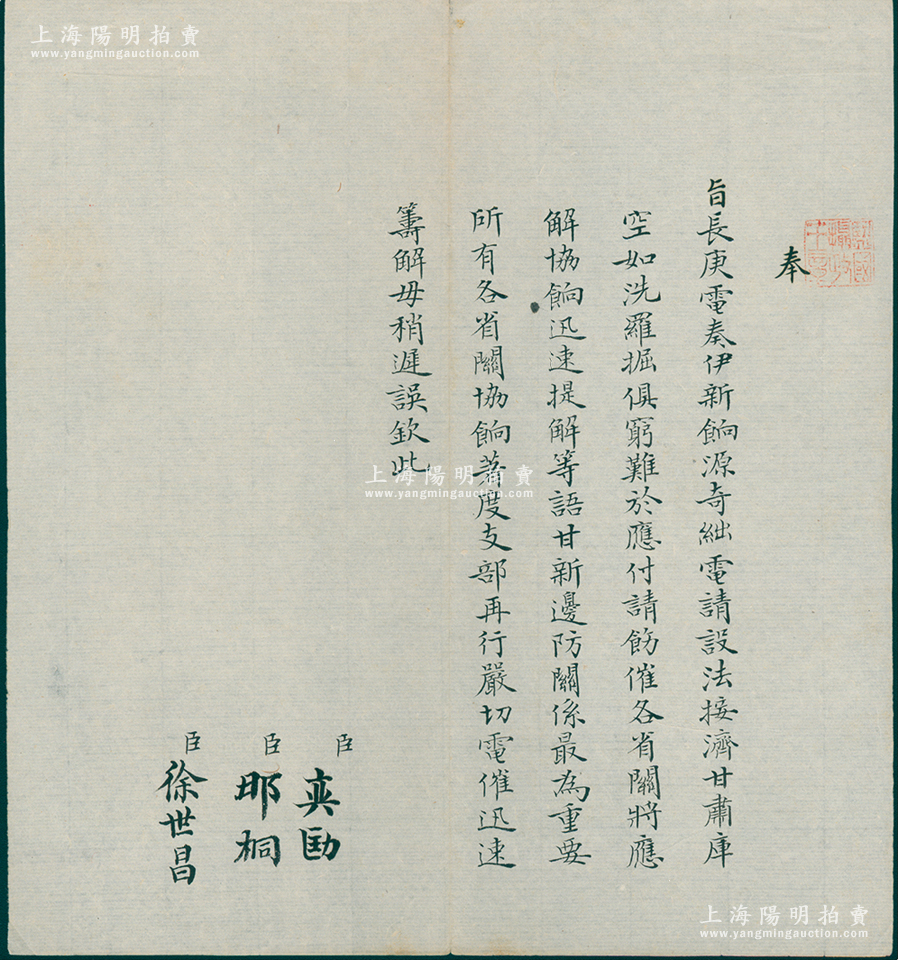 上海陽明拍賣
www.yangmingauction.com
奉
旨長庚電奏伊新餉源奇絀電請設法接濟甘肅庫
空如洗羅掘俱窮難於應付請飭催各省關將應
解協餉迅速提解等語甘新邊防關係最為重要
所有各省關協餉著度支部再行嚴切電催迅速
籌解毋稍遲誤欽此
臣奕劻
臣那桐
臣徐世昌
上海陽明拍賣
www.yangmingauction.com
上海陽明拍賣
www.yangmingauction.com